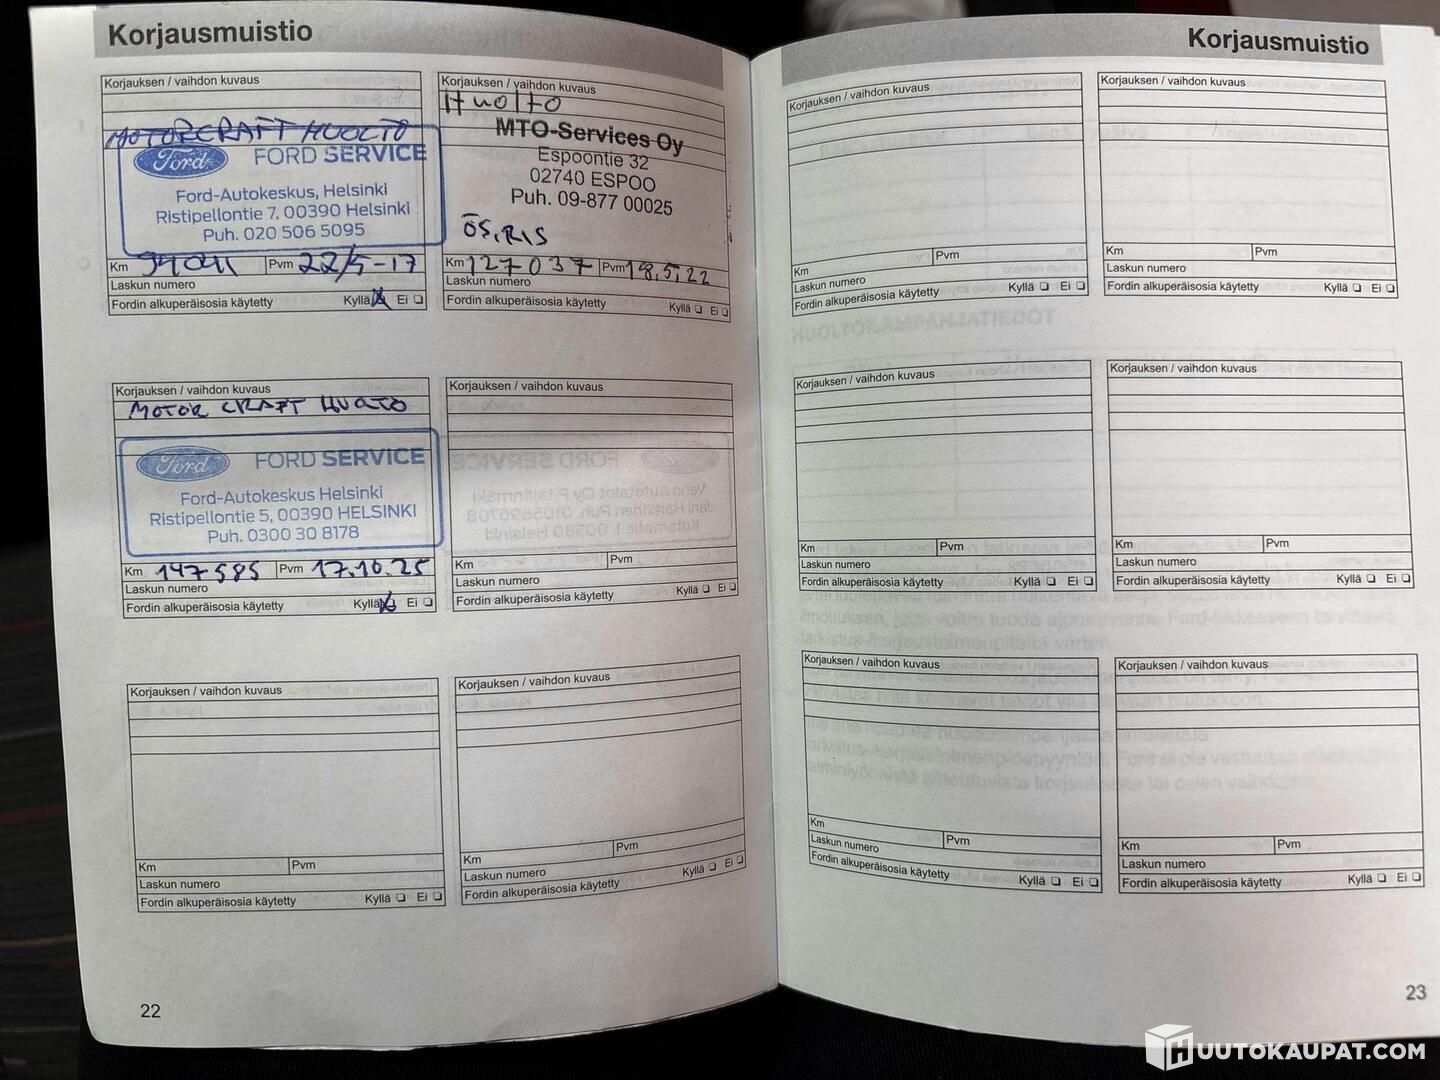 Korjausmuistio
Korjauksen / vaihdon kuvaus
MOTORCRAFT HUOLTO
Ford FORD SERVICE
Ford-Autokeskus, Helsinki
Ristipellontie 7, 00390 Helsinki
Puh. 020 506 5095
Km Pvm 22/5-17
Laskun numero
Fordin alkuperäisosia käytetty Kyllä Ei
Korjauksen / vaihdon kuvaus
Huolto
MTO-Services Oy
Espoontie 32
02740 ESPOO
Puh. 09-877 00025
ÖS, RIS
Km 127037 Pvm 18,5,22
Laskun numero
Fordin alkuperäisosia käytetty Kyllä Ei
Korjauksen / vaihdon kuvaus
MOTOR CRAFT HUOLTO
Ford FORD SERVICE
Ford-Autokeskus Helsinki
Ristipellontie 5, 00390 HELSINKI
Puh. 0300 30 8178
Km 147585 Pvm 17.10.25
Laskun numero
Fordin alkuperäisosia käytetty Kyllä Ei
Korjauksen / vaihdon kuvaus
Km Pvm
Laskun numero
Fordin alkuperäisosia käytetty Kyllä Ei
Korjauksen / vaihdon kuvaus
Km Pvm
Laskun numero
Fordin alkuperäisosia käytetty Kyllä Ei
Korjauksen / vaihdon kuvaus
Km Pvm
Laskun numero
Fordin alkuperäisosia käytetty Kyllä Ei
22
Korjausmuistio
Korjauksen / vaihdon kuvaus
Km Pvm
Laskun numero
Fordin alkuperäisosia käytetty Kyllä Ei
Korjauksen / vaihdon kuvaus
Km Pvm
Laskun numero
Fordin alkuperäisosia käytetty Kyllä Ei
Korjauksen / vaihdon kuvaus
Km Pvm
Laskun numero
Fordin alkuperäisosia käytetty Kyllä Ei
Korjauksen / vaihdon kuvaus
Km Pvm
Laskun numero
Fordin alkuperäisosia käytetty Kyllä Ei
Korjauksen / vaihdon kuvaus
Km Pvm
Laskun numero
Fordin alkuperäisosia käytetty Kyllä Ei
Korjauksen / vaihdon kuvaus
Km Pvm
Laskun numero
Fordin alkuperäisosia käytetty Kyllä Ei
23
HUUTOKAUPAT.COM